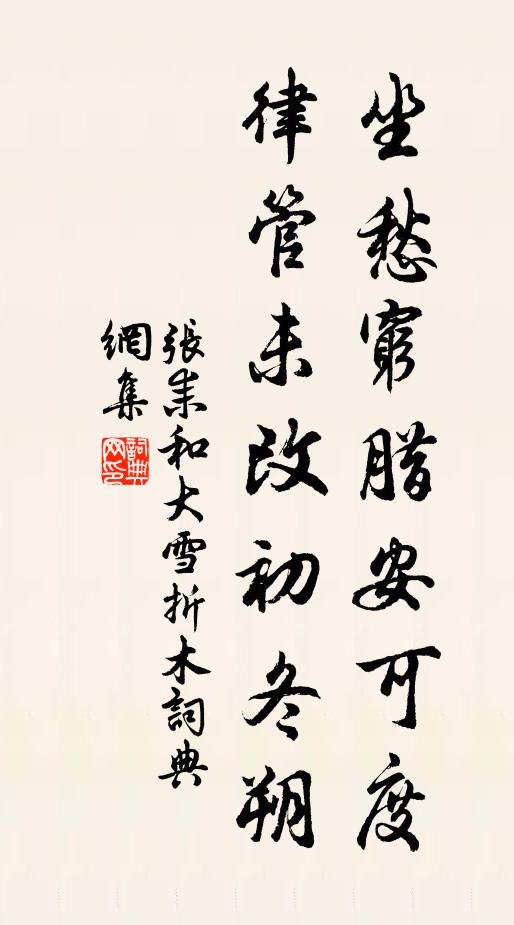 坐愁窮腊安可度
律管未改初冬朔
張耒和大雪折木詞典
網集
詞典网印